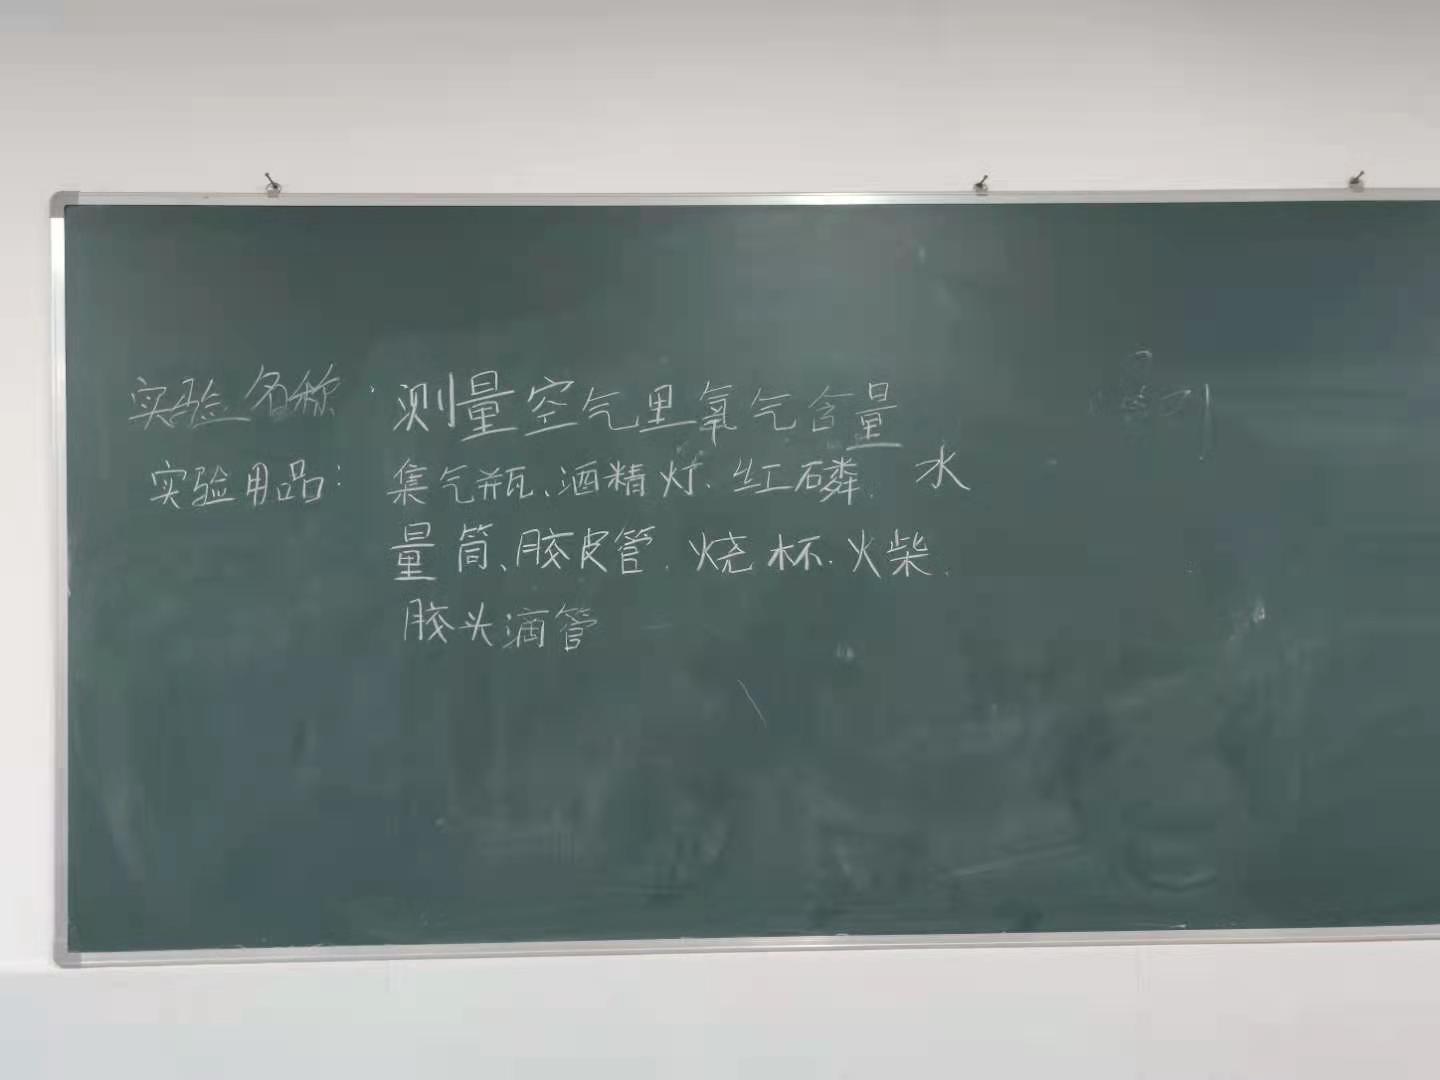 实验名称:测量空气里氧气含量
实验用品:集气瓶、酒精灯.红磷.水
量筒、胶皮管.烧杯.火柴.
胶头滴管